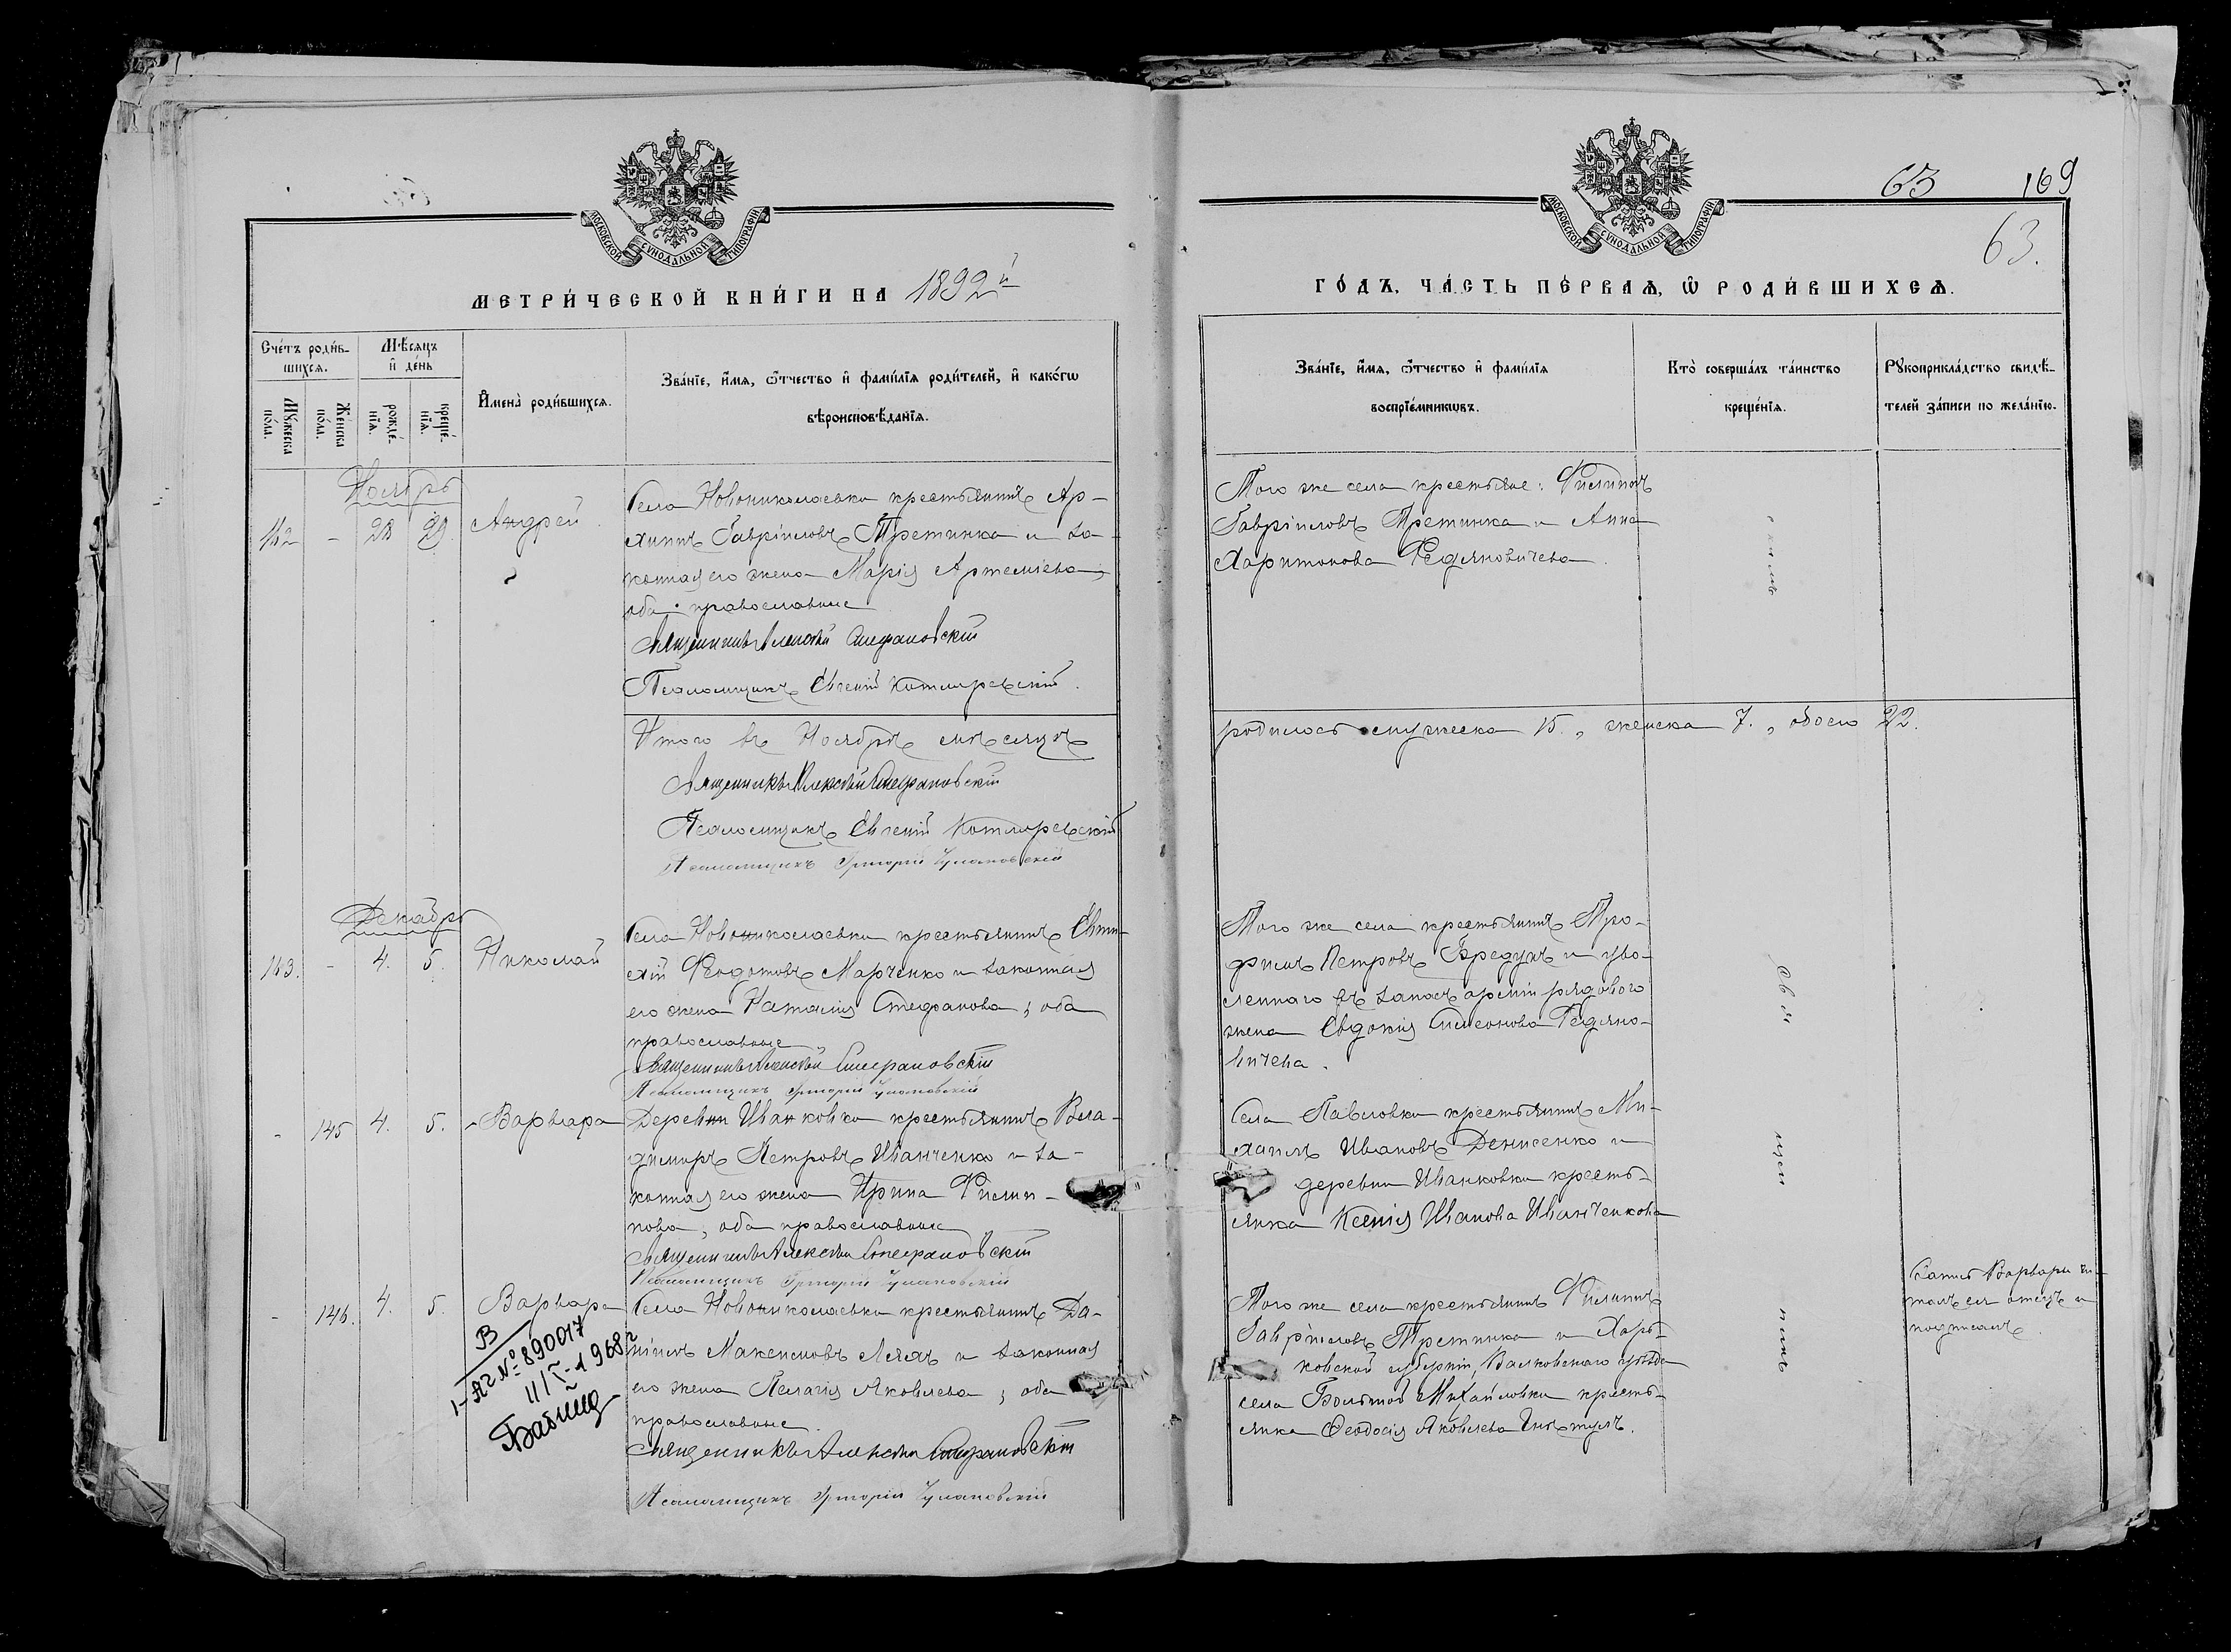 63 169
63.
МОСКОВСКОЙ СѴНОДАЛЬНОЙ ТИПОГРАФІИ
МОСКОВСКОЙ СѴНОДАЛЬНОЙ ТИПОГРАФІИ
МЕТРИ́ЧЕСКОЙ КНИ́ГИ НА 1892й
ГО́ДЪ, ЧА́СТЬ ПЕ́РВАѦ, Ѡ РОДИ́ВШИХСѦ.
Сче́тъ роди́в-
шихсѧ.
Мꙋ́жеска
по́ла.
Же́нска
по́ла.
Мѣ́сѧцъ
и҆ де́нь
рожде́-
нїѧ.
креще́-
нїѧ.
И҆мена̀ роди́вшихсѧ.
Зва́нїе, и҆́мѧ, ѻ҆́тчество и҆ фами́лїѧ роди́телей, и҆ како́гѡ
вѣроисповѣ́данїѧ.
Зва́нїе, и҆́мѧ, ѻ҆́тчество и҆ фами́лїѧ
воспрїе́мникѡвъ.
Кто̀ соверша́лъ та́инство
креще́нїѧ.
Рꙋкоприкла́дство свидѣ́-
телей за́писи по жела́нїю.
Ноябрь
142 - 28 29. Андрей
Села Новониколаевки крестьянинъ Ар-
хипъ Гавріиловъ Третинка и за-
конная его жена Марія Артеміева;
оба православные
Священникъ Алексѣй Стефановскій
Псаломщикъ Евгеній Котляревскій.
Того же села крестьяне: Филиппъ
Гавріиловъ Третинка и Анна
Харитонова Федяновичева.
Итого въ Ноябрѣ мѣсяцѣ
родилось мужеска 15., женска 7., обоего 22.
Священникъ Алексѣй Стефановскій
Псаломщикъ Евгеній Котляревскій
Псаломщикъ Григорій Чулановскій
Декабрь
143. - 4. 5. Николай
Села Новониколаевки крестьянинъ Евти-
хій Феодотовъ Марченко и законная
его жена Наталія Стефанова; оба
православные
Священникъ Алексѣй Стефановскій
Псаломщикъ Григорій Чулановскій
Того же села крестьянинъ Тро-
фимъ Петровъ Бредунъ и уво-
леннаго въ запасъ арміи рядового
жена Евдокія Симеонова Федяно-
вичева.
- 145 4. 5. Варвара
Деревни Иванковки крестьянинъ Вла-
димиръ Петровъ Иванченко и за-
конная его жена Ирина Филип-
пова; оба православные
Священникъ Алексѣй Стефановскій
Псаломщикъ Григорій Чулановскій
Села Павловки крестьянинъ Ми-
хаилъ Ивановъ Денисенко и
деревни Иванковки кресть-
янка Ксенія Иванова Иванченкова
- 146. 4. 5. Варвара
В
1-АГ № 890017
11/I-1968г
Бабнищ
Села Новониколаевки крестьянинъ Да-
ніилъ Максимовъ Ляхъ и законная
его жена Пелагія Яковлева; оба
православные.
Священникъ Алексѣй Стефановскій
Псаломщикъ Григорій Чулановскій
Того же села крестьянинъ Филиппъ
Гавріиловъ Третинка и Харь-
ковской губерніи, Валковскаго уѣзда
села Большой Михайловки кресть-
янка Феодосія Яковлева
Свя
щен
никъ